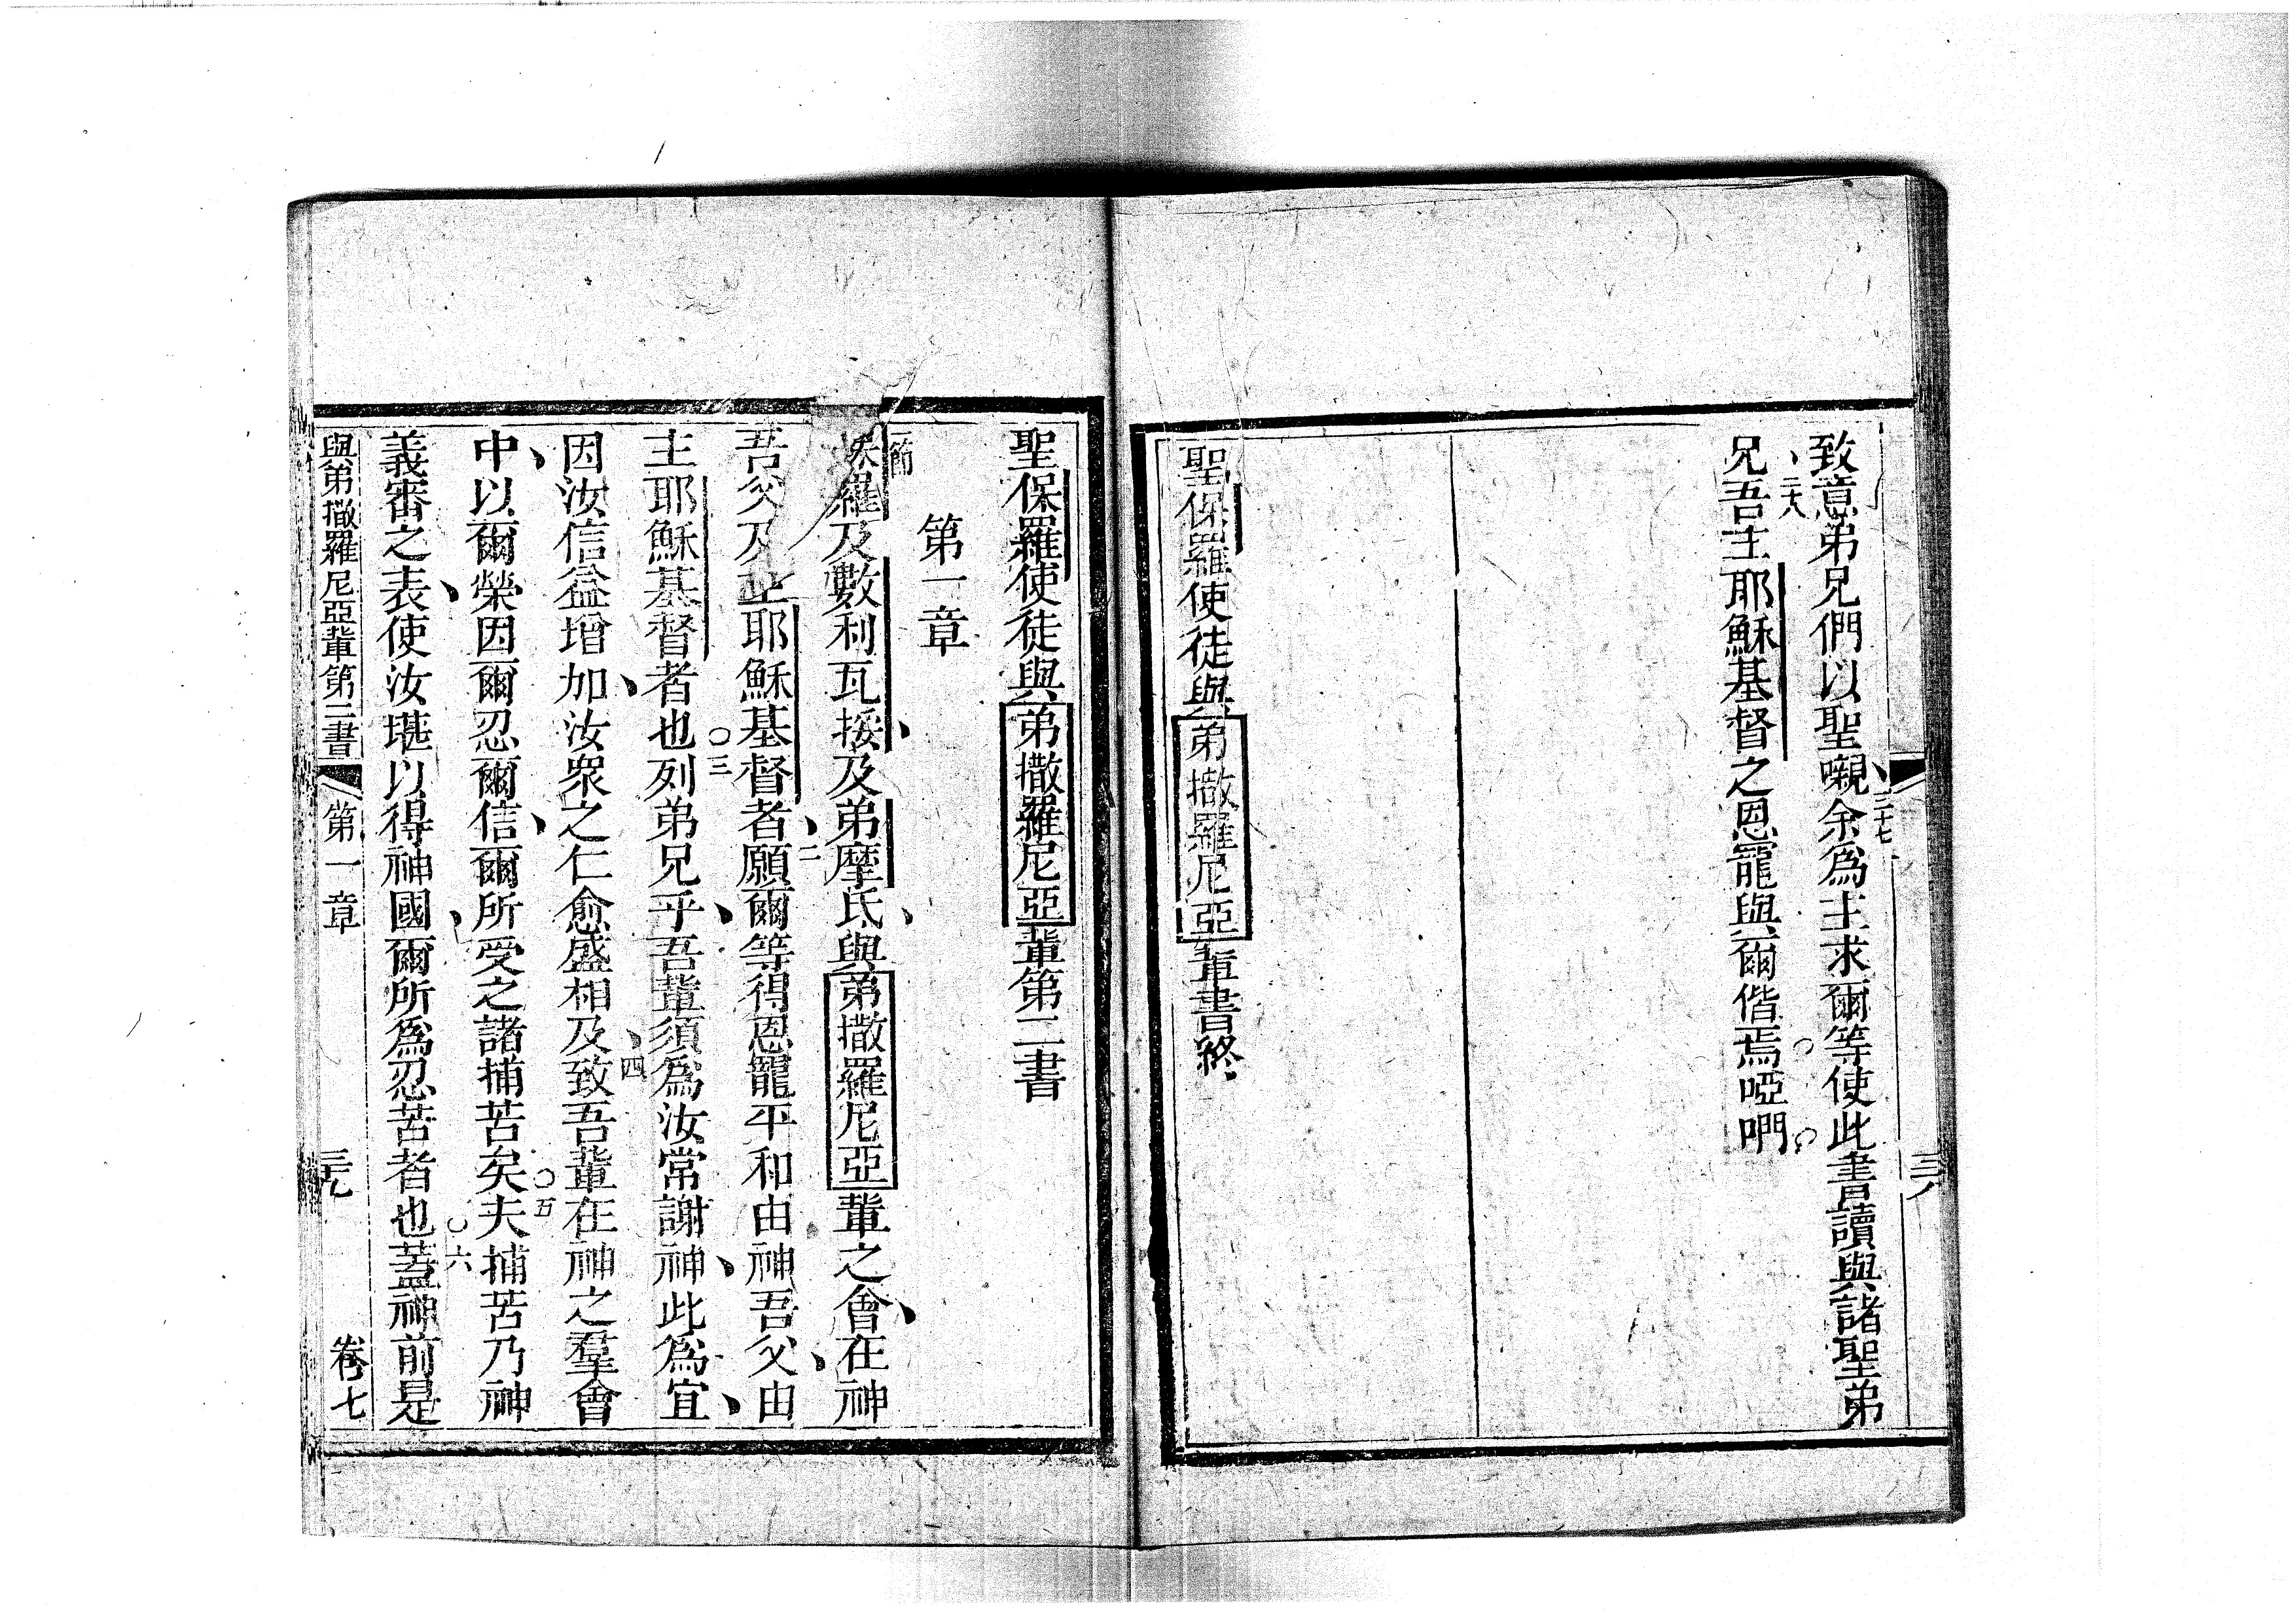 三十八
致意弟兄們以聖嚫、二十七余為主求爾等使此書讀與諸聖弟
兄、二十八吾主耶穌基督之恩寵與爾偕焉。啞
聖保羅使徒與弟撒羅尼亞輩書終
聖保羅使徒與弟撒羅尼亞輩第二書
第一章
一節羅及數利瓦掭、及弟摩氐、與弟撒羅尼亞輩之會、在神
吾父及主耶穌基督者、二願爾等得恩寵平和由神吾父、由
主耶穌基督者也○三列弟兄乎、吾輩須為汝常謝神、此為宜、
因汝信益增加、汝衆之仁愈盛相及、四致吾輩在神之羣會
中、以爾榮因爾忍爾信、爾所受之諸捕苦矣○五夫捕苦乃神
義審之表、使汝堪以得神國、爾所為忍苦者也○六蓋神前是
與弟撒羅尼亞輩第二書 第一章 三十九 卷七